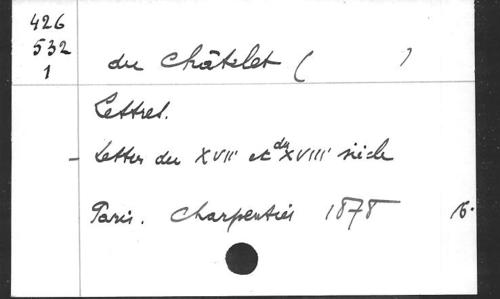 426
532
1
du Châtelet ( )
Lettres.
- Lettres du XVIIe et du XVIIIe siècle
Paris. Charpentier 1878 16.